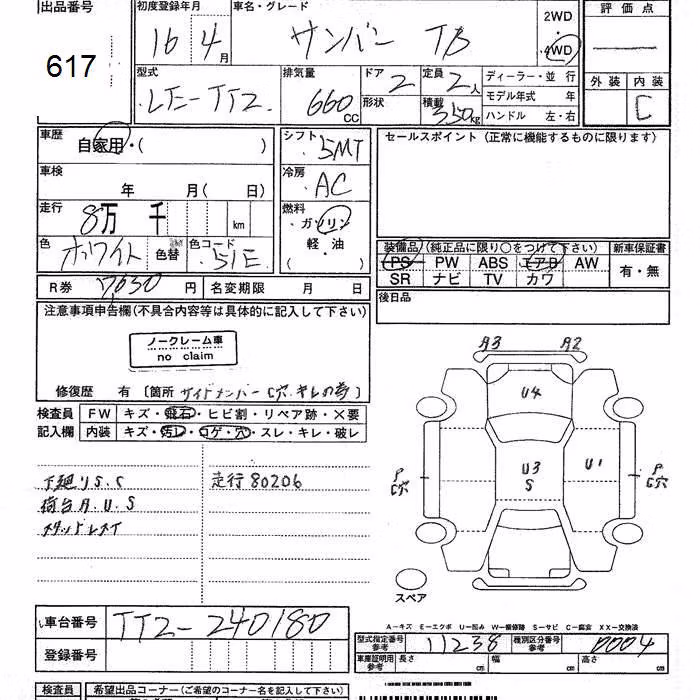 出品番号 初度登録年月 車名・グレード 2WD 評価点
617 16 4月 サンバー TB ・4WD
型式 排気量 ドア 定員 ディーラー・並 行 外装 内装
LE-TT2 660cc 2 2人 モデル年式 年 C
形状 積載 350kg ハンドル 左・右
車歴 自家用・( ) シフト 5MT セールスポイント(正常に機能するものに限ります)
車検 年 月( 日) 冷房 AC
走行 8万 千 km 燃料 ・ガソリン
色 ホワイト 色替 色コード 51E 軽・油 ( ) 装備品 (純正品に限り○をつけて下さい) 新車保証書
PS PW ABS エアB AW 有・無
SR ナビ TV カワ
R券 7630円 名変期限 月 日 後日品
注意事項申告欄(不具合内容等は具体的に記入して下さい)
ノークレーム車
no claim
修復歴 有 〔箇所 サイドメンバー C穴
検査員 FW キズ・飛石・ヒビ割・リペア跡・X要
記入欄 内装 キズ・汚レ・コゲ・穴・スレ・キレ・破レ
A3 A2
U4
U3 U1
S
P P
C穴 C穴
下廻りS.C 走行80206
荷台A.U.S
スタッドレスイ
スペア
A-キズ E-エクボ U-凹み W-補修跡 S-サビ C-腐蝕 XX-交換済
車台番号 TT2-240180
型式指定番号 参考 11238 種別区分番号 参考 0004
登録番号 車庫証明用 参考 長さ cm 幅 cm 高さ cm
検査員 希望出品コーナー(ご希望のコーナー名を記入して下さい)